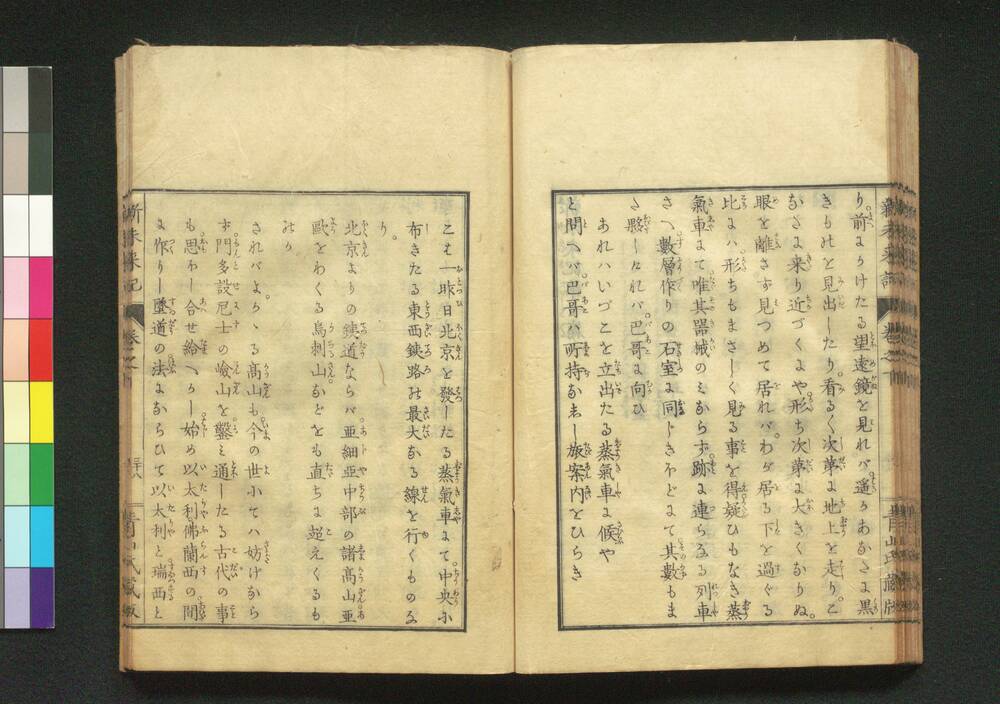 り前にかけたる望遠鏡を見れバ遙かあなたに黒
きものを見出したり看るく次第に地上を走りこ
なたに来り近づくにや形ち次第に大きくなりぬ
眼を離さず見つめて居れバわが居る下を過ぐる
比にハ形ちもまさしく見る事を得疑ひもなき蒸
氣車にて唯其器械のミならず跡に連らなる列車
さへ數層作りの石室に同じきほどにて其數もま
た夥しけれバ巴哥に向ひ
あれハいづこを立出たる蒸氣車に候や
と問へバ巴哥ハ所持なしし旅案内をひらき
こは一昨日北京を發したる蒸氣車にて中央に
布きたる東西鉄路の最大なる線を行くものな
り。
北京よりの鉄道ならバ亜細亜中部の諸高山亜
歐をわくる烏刺山などをも直ちに超えくるも
のか
さればよかゝる高山も今の世にてハ妨げなら
ず門多設尼士の嶮山を鑿ミ通したる古代の事
も思ひし合せ給へかし始め以太利佛蘭西の間
に作りし墜道の法にならひて以太利と瑞西と
新未来記
巻之下
青山氏蔵版